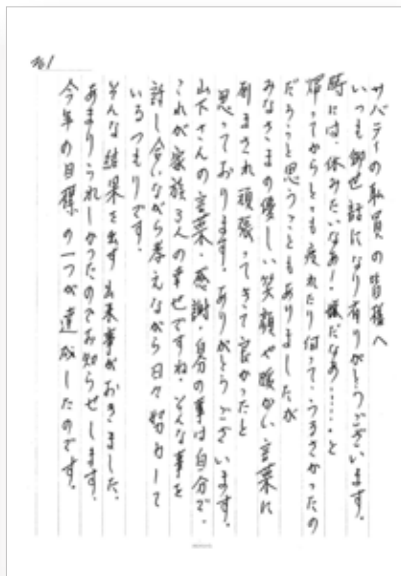 No.1
サバティの職員の皆様へ
いつも御世話になり有りがとうございます。
時には、休みたいなあ！嫌だなあ……。と
帰ってからとっても疲れたり何って、うるさかったの
だろうと思うこともありましたが
みなさまの優しい笑顔や暖かい言葉に
励まされ頑張ってきて良かったと
思っております。ありがとうございます。
山下さんの言葉・感謝・自分の事は自分で・
これが家族3人の幸せですね・そんな事を
話し合いながら考えながら日々努力して
いるつもりです。
そんな結果を出す出来事がおきました。
あまりうれしかったのでお知らせします。
今年の目標の一つが達成したのです。